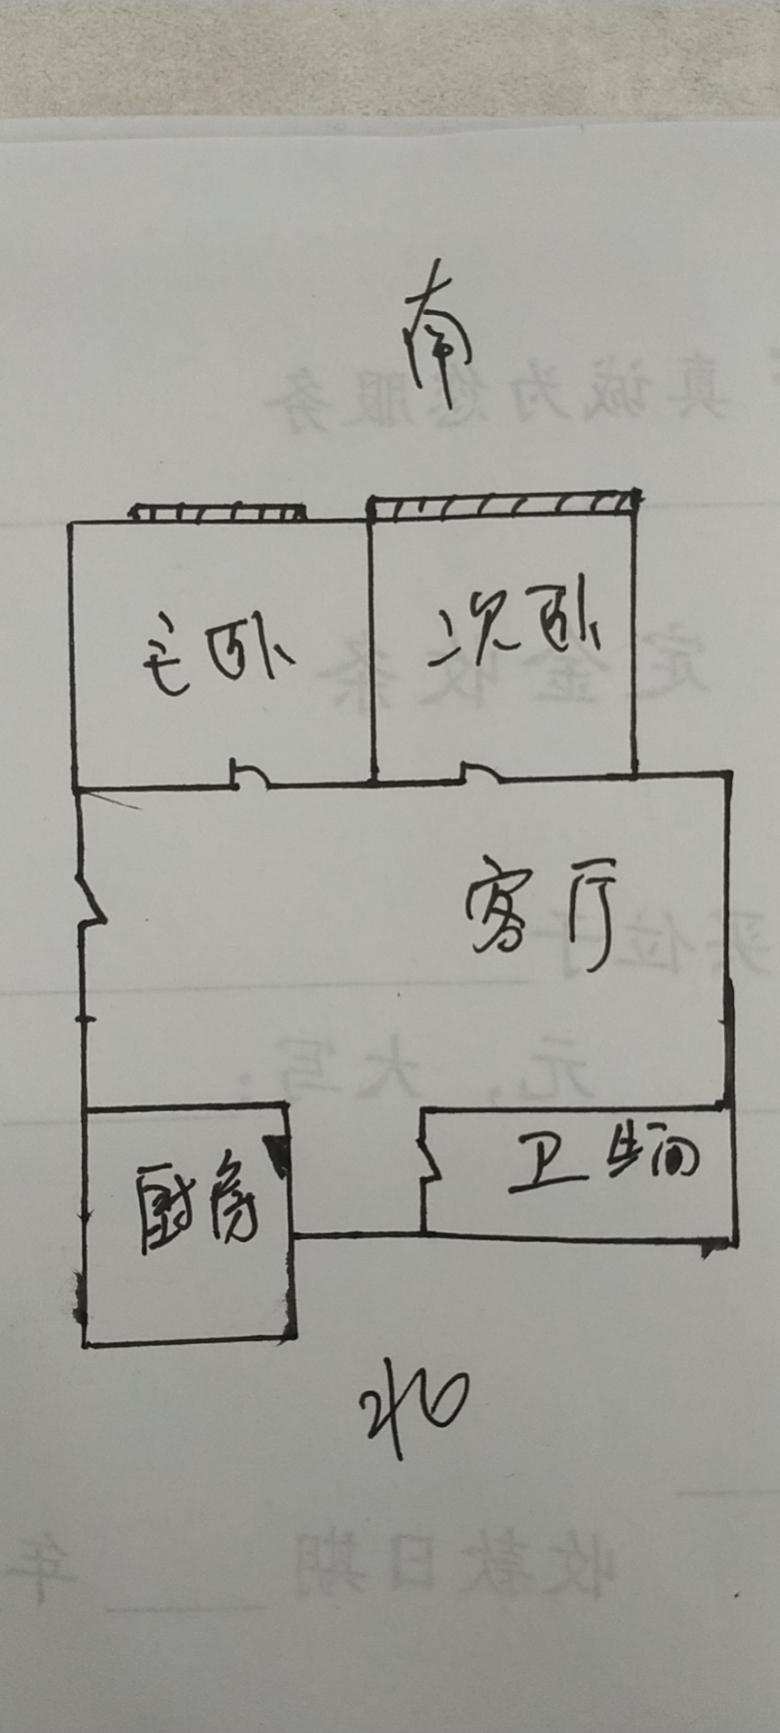 南
真诚为您服务
主卧
次卧
定金收条
客厅
买位于
元，大写：
厨房
卫生间
北
收款日期____年